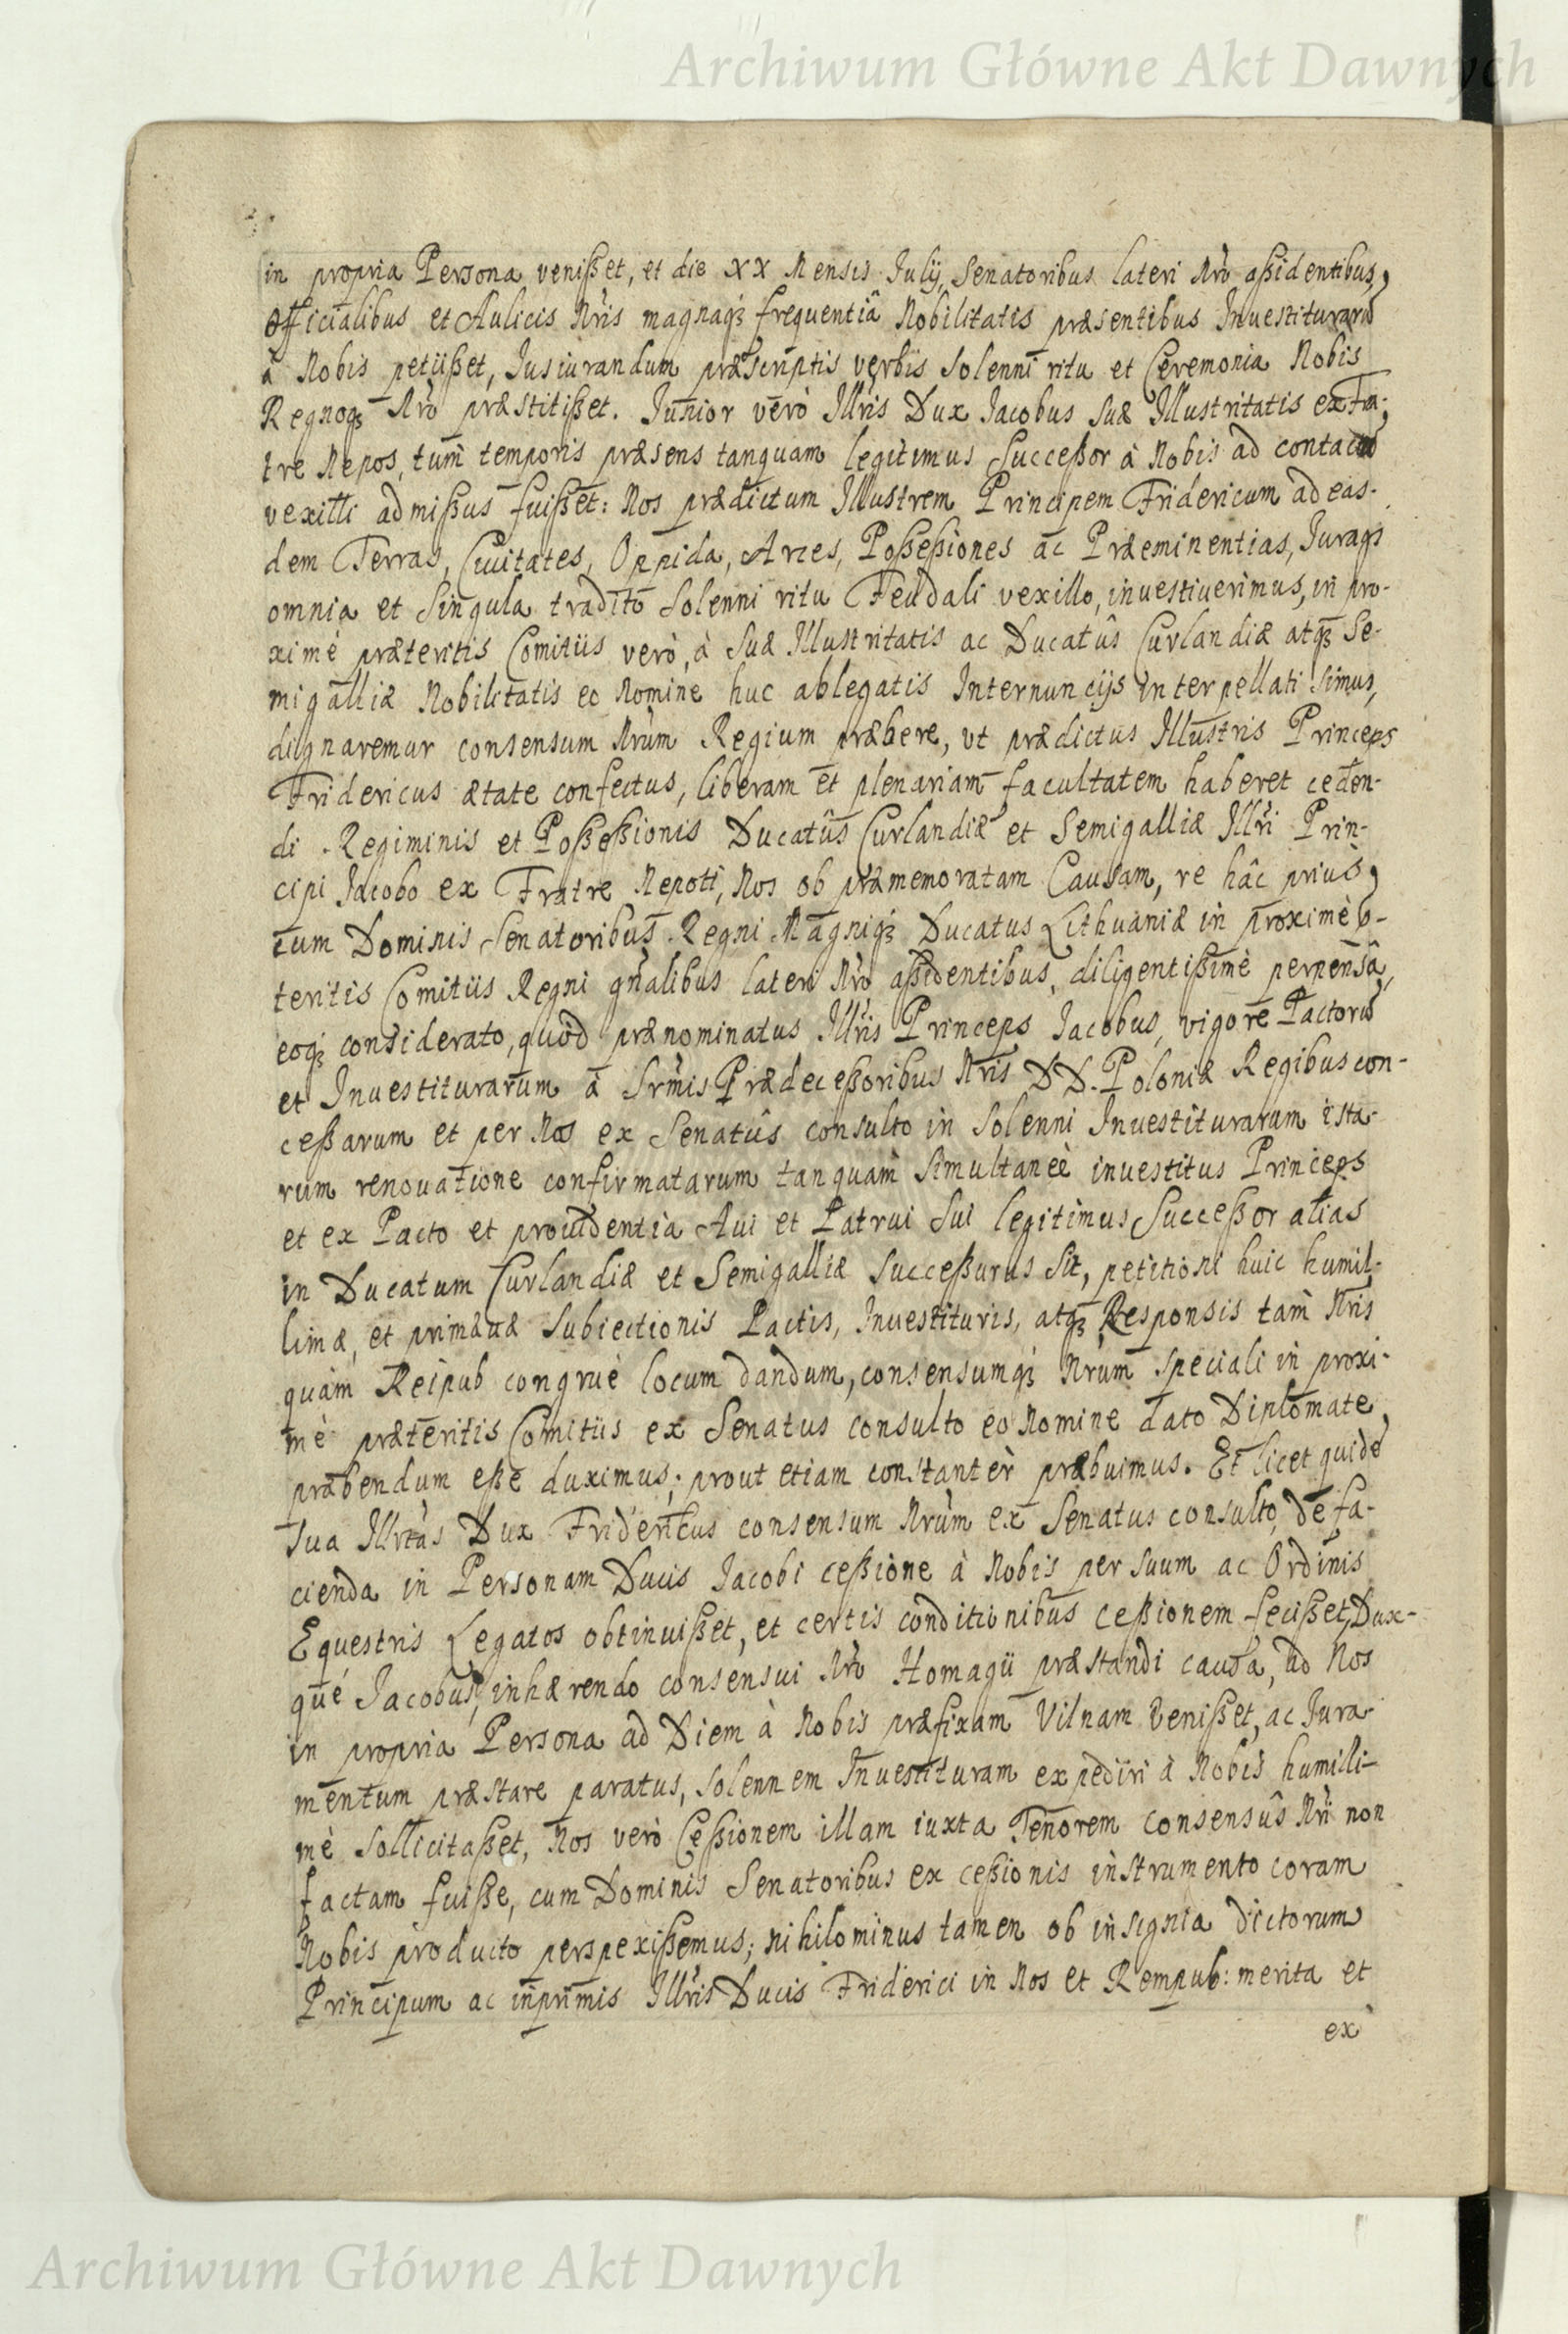 Archiwum Główne Akt Dawnych
in propria Persona venißet, et die XX Mensis Iulij, Senatoribus lateri Nrò aßidentibus,
Officialibus et Aulicis Nris magnaqz frequentiâ Nobilitatis præsentibus Inuestituram
à Nobis petijßet, Iusiurandum præscriptis verbis Solenni ritu et Ceremonia Nobis
Regnoqz Nrò præstitißet. Iunior verò Illris Dux Iacobus suæ Illustritatis ex Fra-
tre Nepos, tum temporis præsens tanquam legitimus Succeßor à Nobis ad contactum
vexilli admißus fuißet: Nos prædictum Illustrem Principem Fridericum ad eas-
dem Terras, Ciuitates, Oppida, Arces, Poßeßiones ac Præeminentias, Iuraqz
omnia et Singula tradito Solenni ritu Feudali vexillo, inuestiuerimus, in pro-
ximè præteritis Comitiis verò, à Suæ Illustritatis ac Ducatûs Curlandiæ atqz Se-
migalliæ Nobilitatis eo Nomine huc ablegatis Internuncijs interpellati simus,
dignaremur consensum Nrum Regium præbere, vt prædictus Illustris Princeps
Fridericus ætate confectus, liberam et plenariam facultatem haberet ceden-
di Regiminis et Poßeßionis Ducatûs Curlandiæ et Semigalliæ Illri Prin-
cipi Iacobo ex Fratre Nepoti, Nos ob præmemoratam Causam, re hâc prius,
cum Dominis Senatoribus Regni Magniqz Ducatus Lithuaniæ in proximè p-
teritis Comitiis Regni gnalibus lateri Nrò aßidentibus, diligentißimè perpensâ,
eoqz considerato, quòd prænominatus Illris Princeps Iacobus, vigore Pactorum
et Inuestiturarum à Srmis Prædeceßoribus Nris DD. Poloniæ Regibus con-
ceßarum et per Nos ex Senatûs consulto in Solenni Inuestiturarum ista-
rum renouatione confirmatarum tanquam Simultaneè inuestitus Princeps
et ex Pacto et prouidentia Aui et Patrui Sui legitimus Succeßor alias
in Ducatum Curlandiæ et Semigalliæ Succeßurus sit, petitioni huic humil-
limæ, et primæuæ Subiectionis Pactis, Inuestituris, atqz Responsis tam Nris
quàm Reipub congruè locum dandum, consensumqz Nrum speciali in proxi-
mè præteritis Comitiis ex Senatus consulto eo Nomine dato Diplomate,
præbendum eße duximus; prout etiam constantèr præbuimus. Et licet quidē
Sua Illrtas Dux Fridericus consensum Nrum ex Senatus consulto, de fa-
cienda in Personam Ducis Iacobi ceßione à Nobis per suum ac Ordinis
Equestris Legatos obtinuißet, et certis conditionibus ceßionem fecißet, Dux-
qué Iacobus, inhærendo consensui Nrò Homagii præstandi causa, ad Nos
in propria Persona ad Diem à Nobis præfixam Vilnam venißet, ac Iura-
mentum præstare paratus, solennem Inuestituram expediri à Nobis humili-
mè sollicitaßet, Nos verò Ceßionem illam iuxta Tenorem consensûs Nri non
factam fuiße, cum Dominis Senatoribus ex ceßionis instrumento coram
Nobis producto perspexißemus; nihilominus tamen ob insignia dictorum
Principum ac inprimis Illris Ducis Friderici in Nos et Rempub: merita et
ex
Archiwum Główne Akt Dawnych